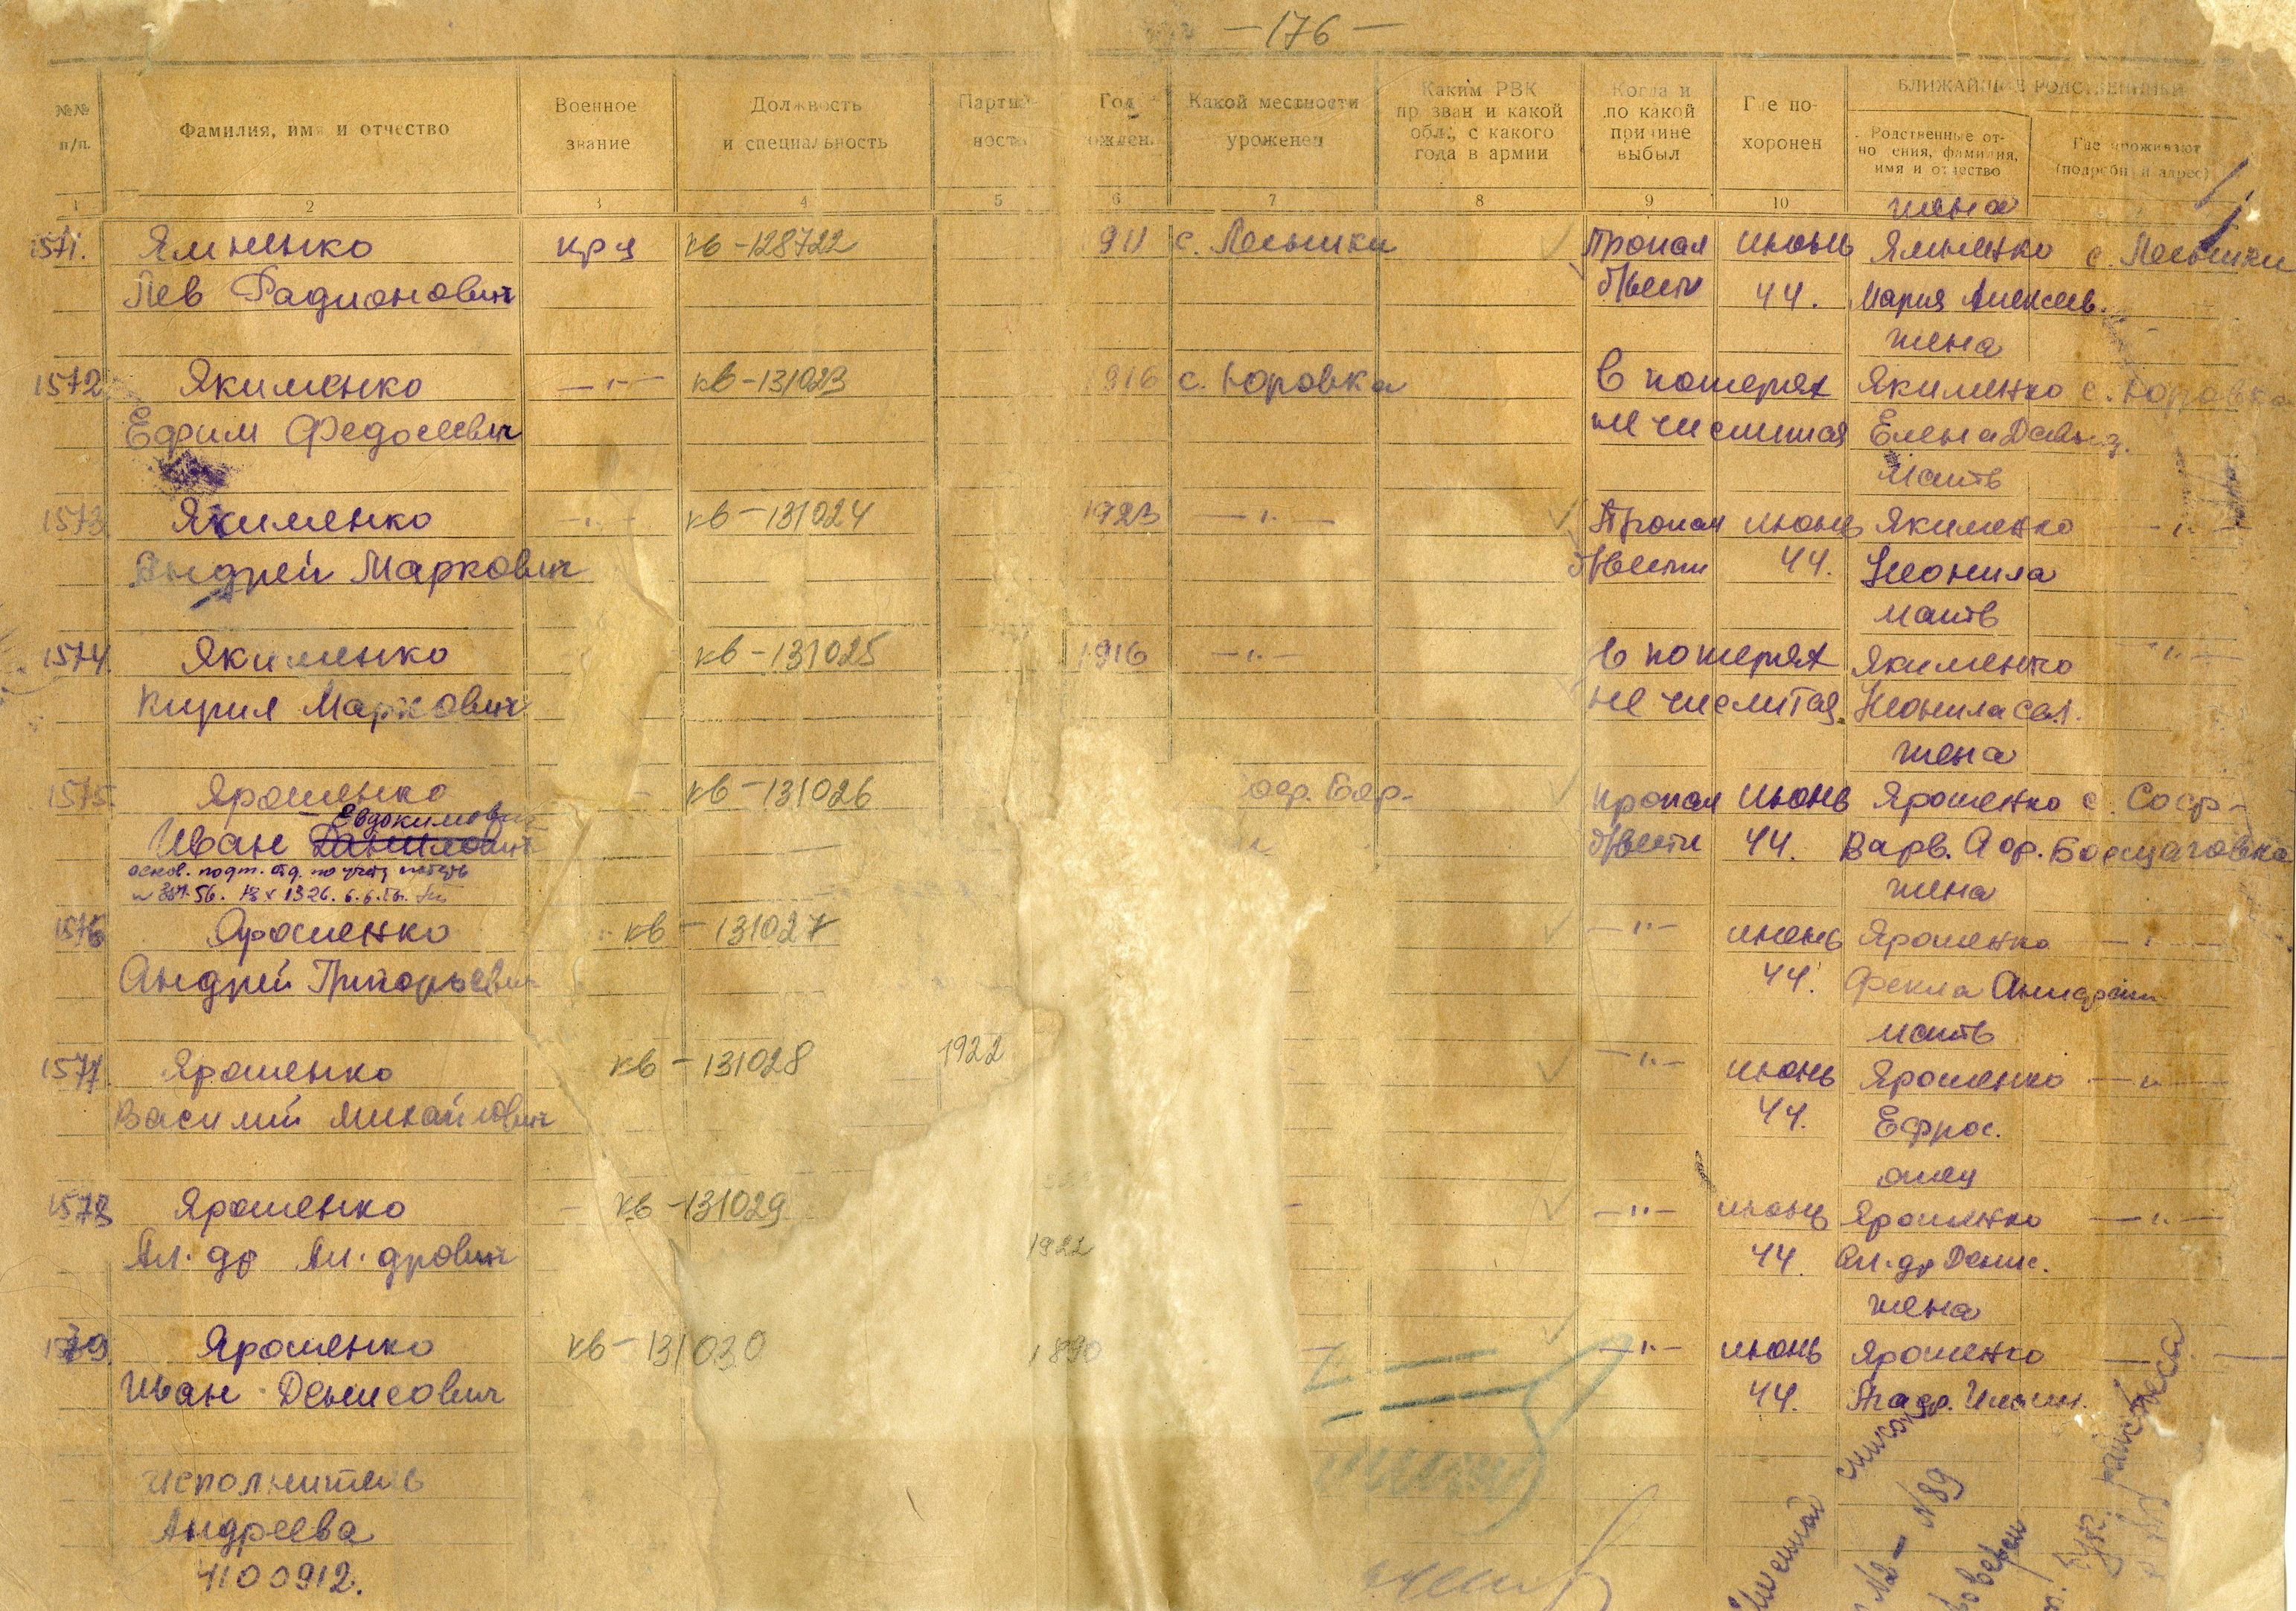 —176—
№№ п/п.
Фамилия, имя и отчество
Военное звание
Должность и специальность
Партий- ность
Год рожден.
Какой местности уроженец
Каким РВК призван и какой обл., с какого года в армии
Когда и по какой причине выбыл
Где по- хоронен
БЛИЖАЙШИЕ РОДСТВЕННИКИ
Родственные от- ношения, фамилия, имя и отчество
Где проживают (подробный адрес)
1 2 3 4 5 6 7 8 9 10
жена
1571. Ялиненко кр-ц кв-128722 911 с. Пропал июнь Ялиненко с.
Лев Радионович б/вести 44. Мария Алексеев.
жена
1572 Якименко —"— кв-131023 916 с. Юровка В потерях Якименко с. Юровка
Ефим Федосеевич не числится Елена Давид.
Мать
1573 Якименко —"— кв-131024 1923 —"— Пропал июнь Якименко —"—
Андрей Маркович б/вести 44. Неонила
мать
1574. Якименко кв-131025 1916 —"— В потерях Якименко —"—
Кирил Маркович не числится Неонила Сав.
жена
1575. Ярошенко кв-131026 Соф. Бор- Пропал июнь Ярошенко с. Соф-
Евдокимович
Иван Данилович б/вести 44. Варв. Борщаговка
основ. подт. отд. по учету потерь
жена
1576 Ярошенко кв-131027 —"— июнь Ярошенко —"—
Андрей Григорьевич 44. Фекла
мать
1577. Ярошенко кв-131028 1922 —"— июнь Ярошенко —"—
Василий Михайлович 44. Ефрос.
отец
1578 Ярошенко кв-131029 —"— июнь Ярошенко —"—
1922
Ал-др Ал-дрович 44. Ал-др Денис.
жена
1579. Ярошенко кв-131030 1890 —"— июнь Ярошенко —"—
Иван Денисович 44. Агаф.
Исполнитель
Андреева
4100912.
список
№2 — №89